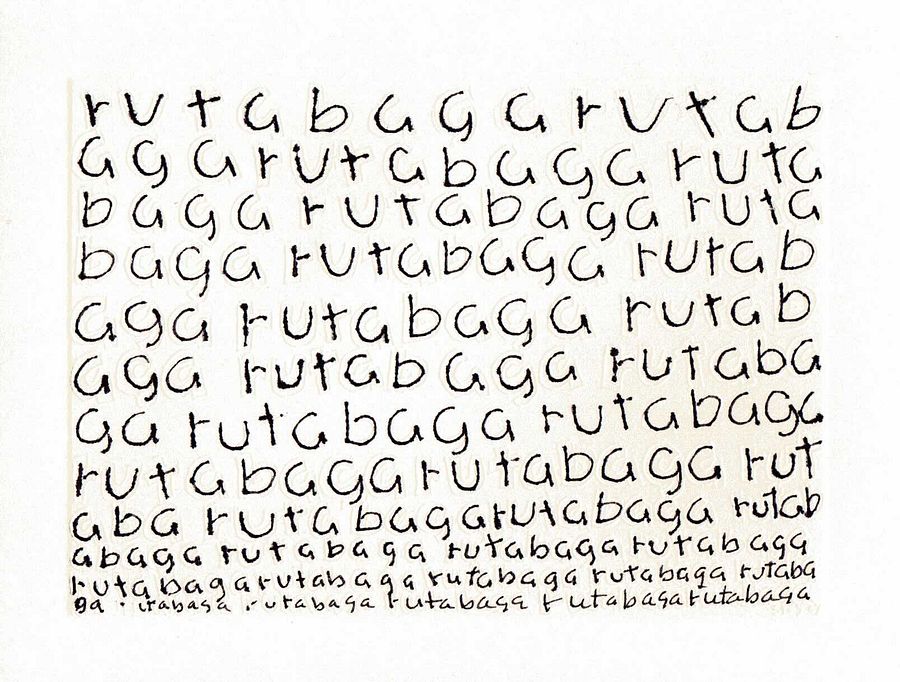 rutabagarutab
agarutabaga ruta
baga rutabaga ruta
baga rutabaga rutab
aga rutabaga rutab
aga rutabaga rutaba
ga rutabaga rutabaga
rutabagarutabaga rut
aba rutabagarutabaga rutab
abaga rutabaga rutabaga rutabaga
rutabagarutabaga rutabaga rutabaga rutaba
ga utabaga rutabaga rutabaga rutabagarutabaga